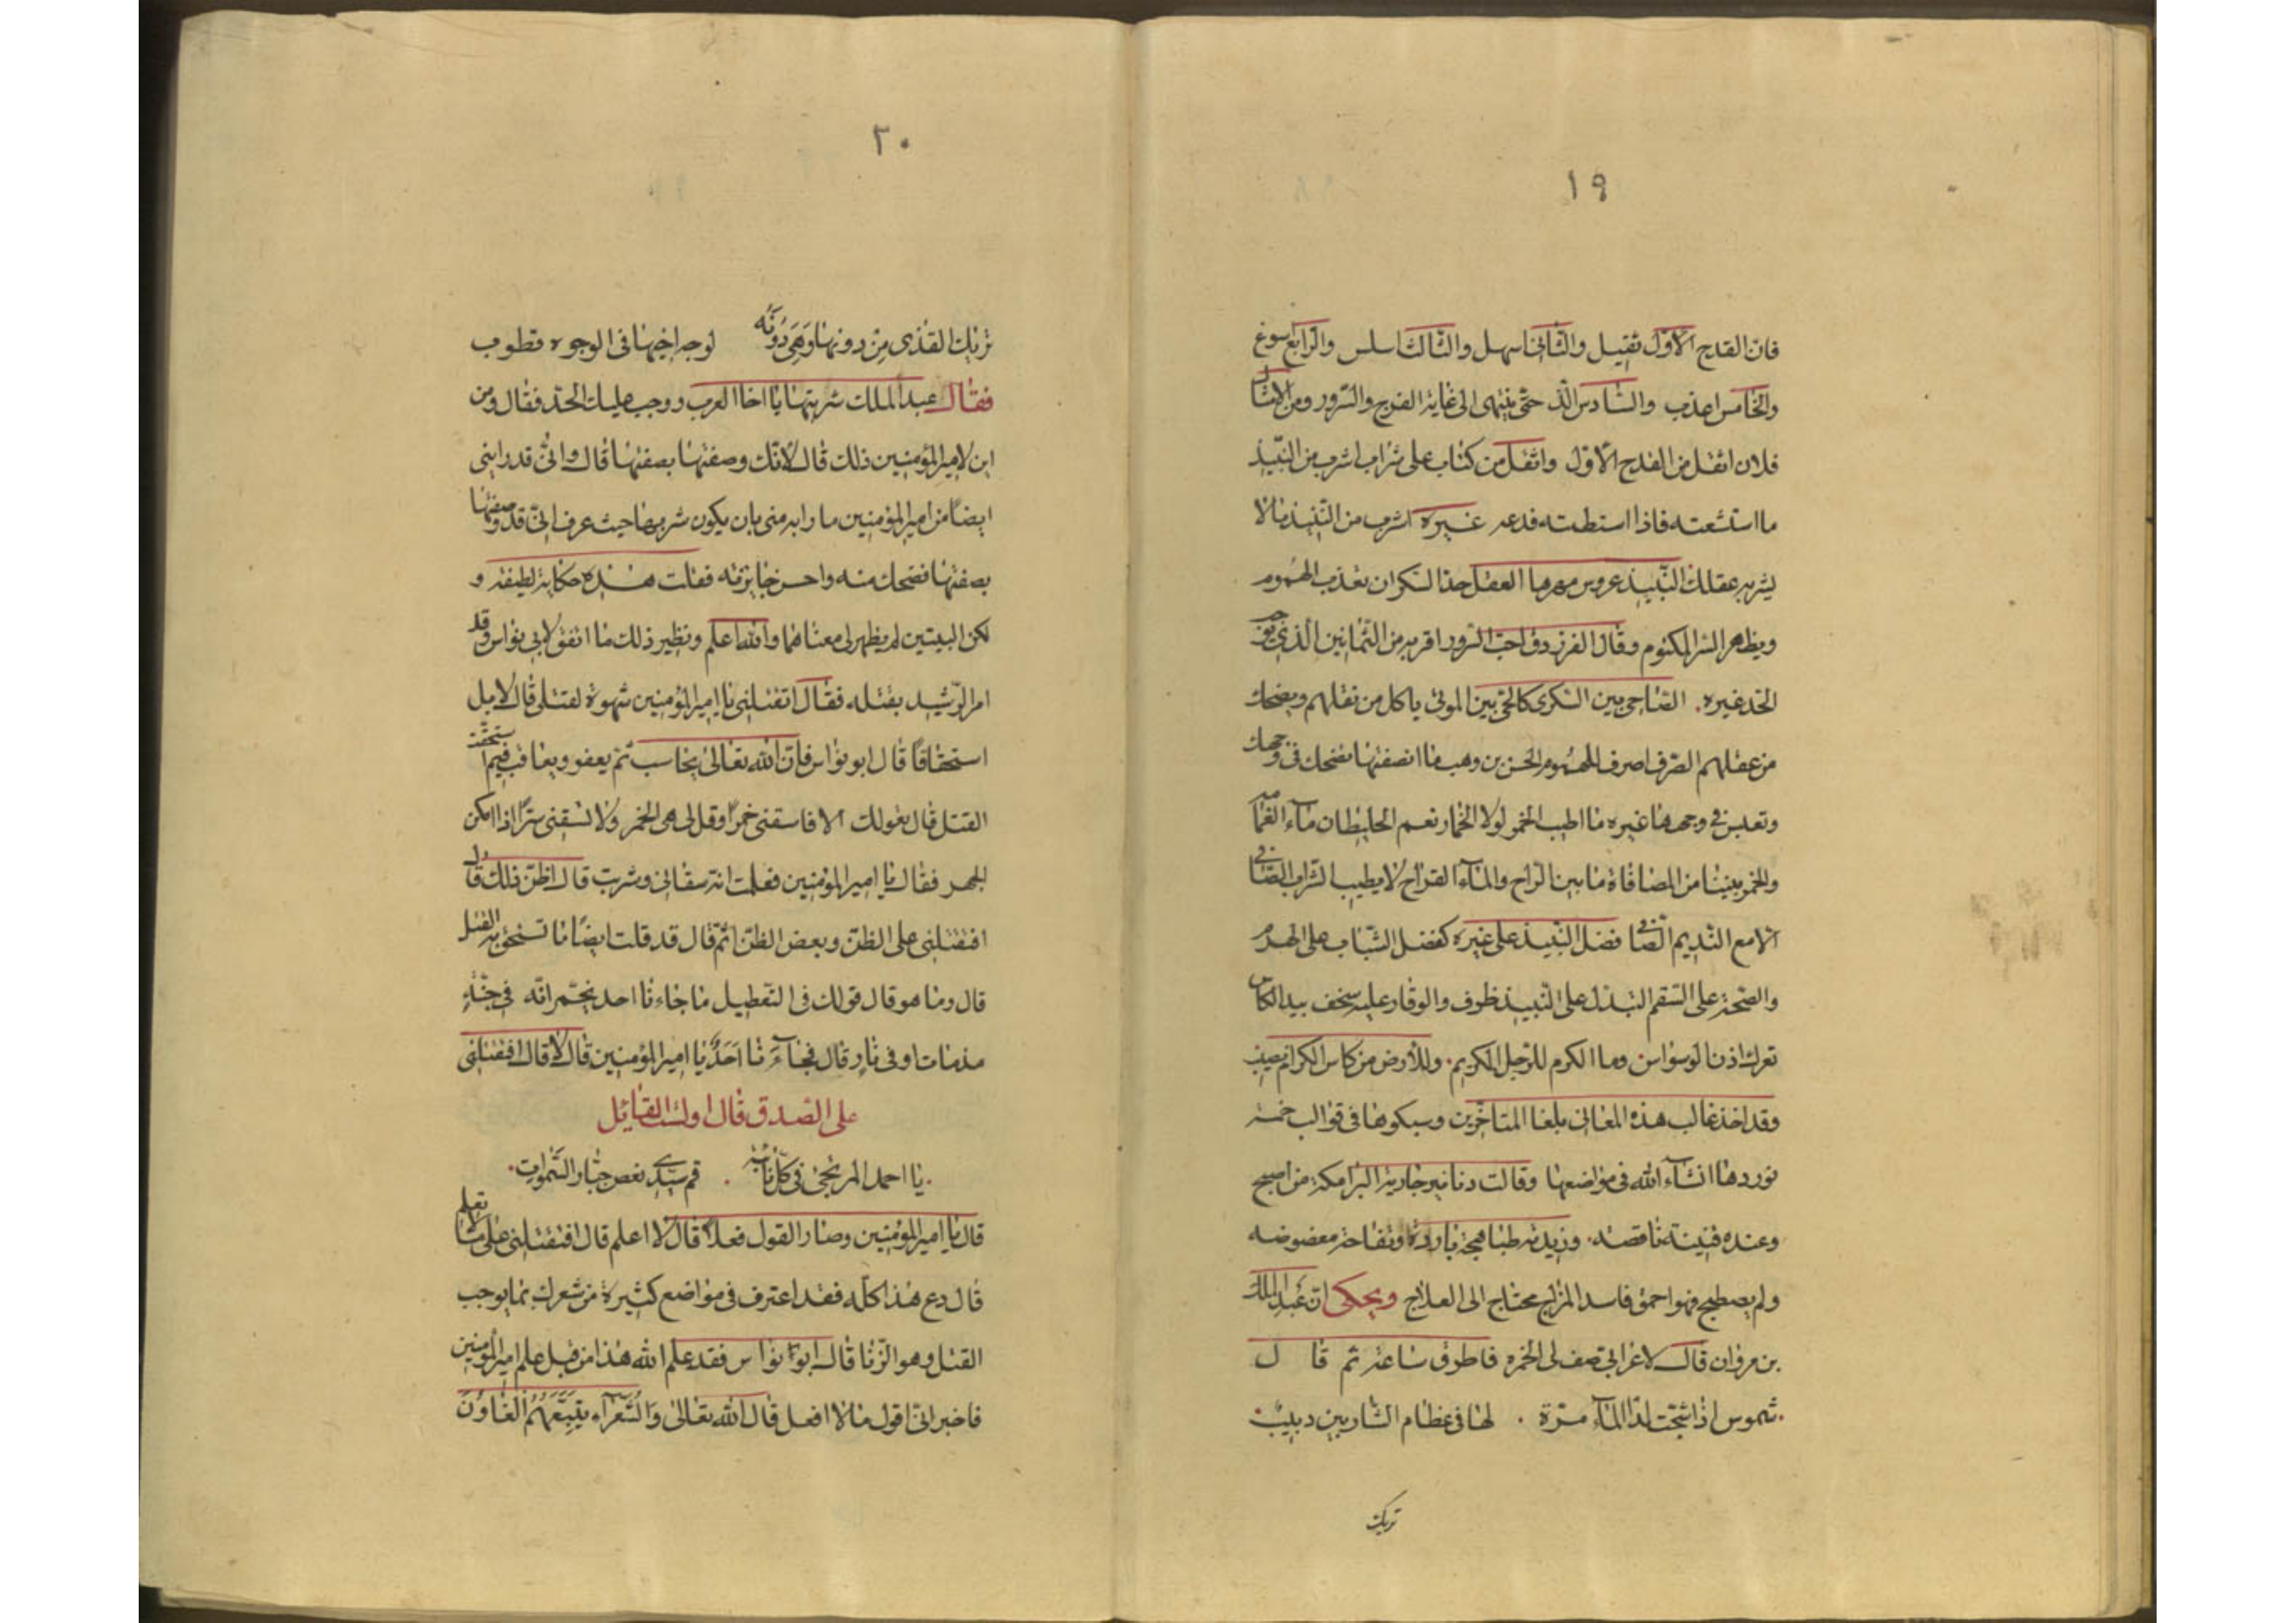 ١٩
فان القدح الاوّل ثقيل والثّانى اسهل والثّالث اسلس والرّابع اسوغ
والخامس اعذب والسّادس الذّ حتّى ينتهى الى غاية الفرح والسّرور ومن الامثال
فلان اثقل من القدح الاوّل واثقل من كتاب على شراب اشرب من النّبيذ
ما استشعته فاذا استطبته فدعه غيره اشرب من النّبيذ مالا
يشرب عقلك النّبيذ عروس مهرها العقل حذا السكران تعذب الهموم
ويظهر السّر المكتوم وقال الفرزدق احبّ السّرور اقربه من الثّمانين الذى يوجب
الحد غيره. الصّاحى بين السّكرى كالحىّ بين الموتى ياكل من نقلهم ويضحك
من عقلهم الصّرف اصرف للهموم الحسن بن وهب ما انصفتها تضحك فى وجهك
وتعبس فى وجهها غيره ما اطيب الخمر لولا الخمار نعم الخليطان ماء الغمامه
والخمر بيننا من المصافاة ما بين الرّاح والماء القراح لا يطيب الشّراب الصّافى
الّا مع النّديم الصّافى فضل النّبيذ على غيره كفضل الشّباب على الهرم
والصّحة على السّقم التبذل على النّبيذ ظرف والوقار عليه سخف بيد الكاس
تعرك اذن الوسواس وما الكرم للرّجل الكريم. وللأرض من كاس الكرام نصيب
وقد اخذ غالب هذه المعانى بلغا المتاخّرين وسبكوها فى قوالب خمسة
نوردها انشاء الله فى مواضعها وقالت دنانير جارية البرامكة من اصبح
وعنده قنّينة ناقصه. وزيدية طباهجة باردة وتفّاحة معضوضه
ولم يصطبح فهو احمق فاسد المزاج محتاج الى العلاج ويحكى انّ عبد الملك
بن مروان قال لاعرابى صف لى الخمره فاطرق ساعة ثم قا ل
.شموس اذا شجّت لذا الماء مرّة . لها فى عظام الشّاربين دبيب.
تريك
٢٠
تريك القذى من دونها وَهىَ دُونَه لوجه اخيها فى الوجوه قطوب
فقال عبد الملك شربتها يا اخا العرب ووجب عليك الحدّ فقال ومن
اين لامير المؤمنين ذلك قال لانّك وصفتها بصفتها قال وانّى قد رابنى
ايضًا من امير المؤمنين ما رابه منى بان يكون شربها حيث عرف انىّ قد وصفتها
بصفتها فضحك منه واحسن جايزته فقلت هذه حكاية لطيفة و
لكن البيتين لم يظهر لى معناهما والله اعلم ونظير ذلك ما اتفق لابى نواس وقد
امر الرّشيد بقتله فقال اتقتلنى يا امير المؤمنين شهوة لقتلى قال لا بل
استحقاقًا قال ابو نواس فانّ الله تعالى يحاسب ثم يعفو ويعاقب فيم استحقّت
القتل قال بقولك الا فاسقنى خمرًا وقل لى هى الخمر ولا تسقنى سرًّا اذا امكن
الجهر فقال يا امير المؤمنين فعلمت انه سقانى وشربت قال اظنّ ذلك قال
افتقتلنى على الظنّ وبعض الظنّ اثم قال قد قلت ايضًا ما تستحق به القتل
قال وما هو قال قولك فى التّعطيل ما جاءنا احد يخبّر انّه فى جنّةٍ
مذ مات او فى نار قال فجاءَنا اَحَدٌ يا امير المؤمنين قال لا قال افتقتلنى
على الصّدق قال اولست القائل
.يا احمد المرتجى فى كلّ نائبة . قم سيّدى نعص جبّار السّموات.
قال يا امير المؤمنين وصار القول فعلًا قال لا اعلم قال افتقتلنى على ما لا تعلم
قال دع هذا كلّه فقد اعترف فى مواضع كثيرة من شعرك بما يوجب
القتل وهو الزّنا قال ابو نواس فقد علم الله هذا من قبل علم امير المؤمنين
فاخبر انىّ اقول مالا افعل قال الله تعالى وَالشُّعَرآء يتَّبِعُهُمُ الغاوُنَ